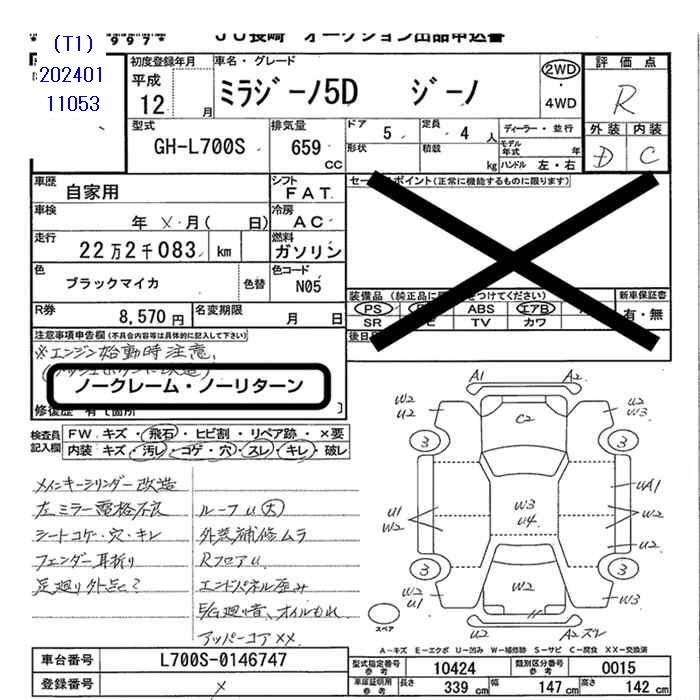 (T1)
202401
11053
JU長崎 オークション出品申込書
初度登録年月
平成
12 月
車名・グレード
ミラジーノ5D ジーノ
2WD
・
4WD
評価点
R
外装 内装
D C
型式
GH-L700S
排気量
659
CC
ドア 5
形状
定員 4 人
積載 kg
ディーラー・並行
モデル年式 年
ハンドル 左・右
車歴
自家用
シフト
FAT
車検
年 ×月( 日)
冷房
AC
走行
22万2千083 km
燃料
ガソリン
色
ブラックマイカ
色替
色コード
N05
R券
8,570円
名変期限
月 日
セールスポイント(正常に機能するものに限ります)
装備品(純正品に
つけてください)
PS ABS エアB
SR TV カワ
新車保証書
有・無
後日
注意事項申告欄(不具合内容等は具体的に記入して下さい)
※エンジン始動時注意、
ノークレーム・ノーリターン
修復歴 有[箇所 ]
検査員
記入欄
FW キズ・飛石・ヒビ割・リペア跡・×要
内装 キズ・汚レ・コゲ・穴・スレ・キレ・破レ
メインキーシリンダー改造
左ミラー電格不良
シートコゲ・穴・キレ
フェンダー耳折り
足廻り外品?
ルーフu大
外装補修ムラ
Rフロアu
エンドパネル歪み
E/G廻り音、オイルもれ
アッパーコア××
A1 A2
W2
u2
u2
W3
C2
3 3
u1
W2
W3
u4
uA1
W2
u2
3 3
W2
u1
W2
u2
W3
スペア
u2 A2ズレ
A−キズ E−エクボ U−凹み W−補修跡 S−サビ C−腐食 XX−交換済
車台番号
L700S-0146747
登録番号
×
型式指定番号
参考
10424
類別区分番号
参考
0015
車庫証明用
参考
長さ 339 cm
幅 147 cm
高さ 142 cm